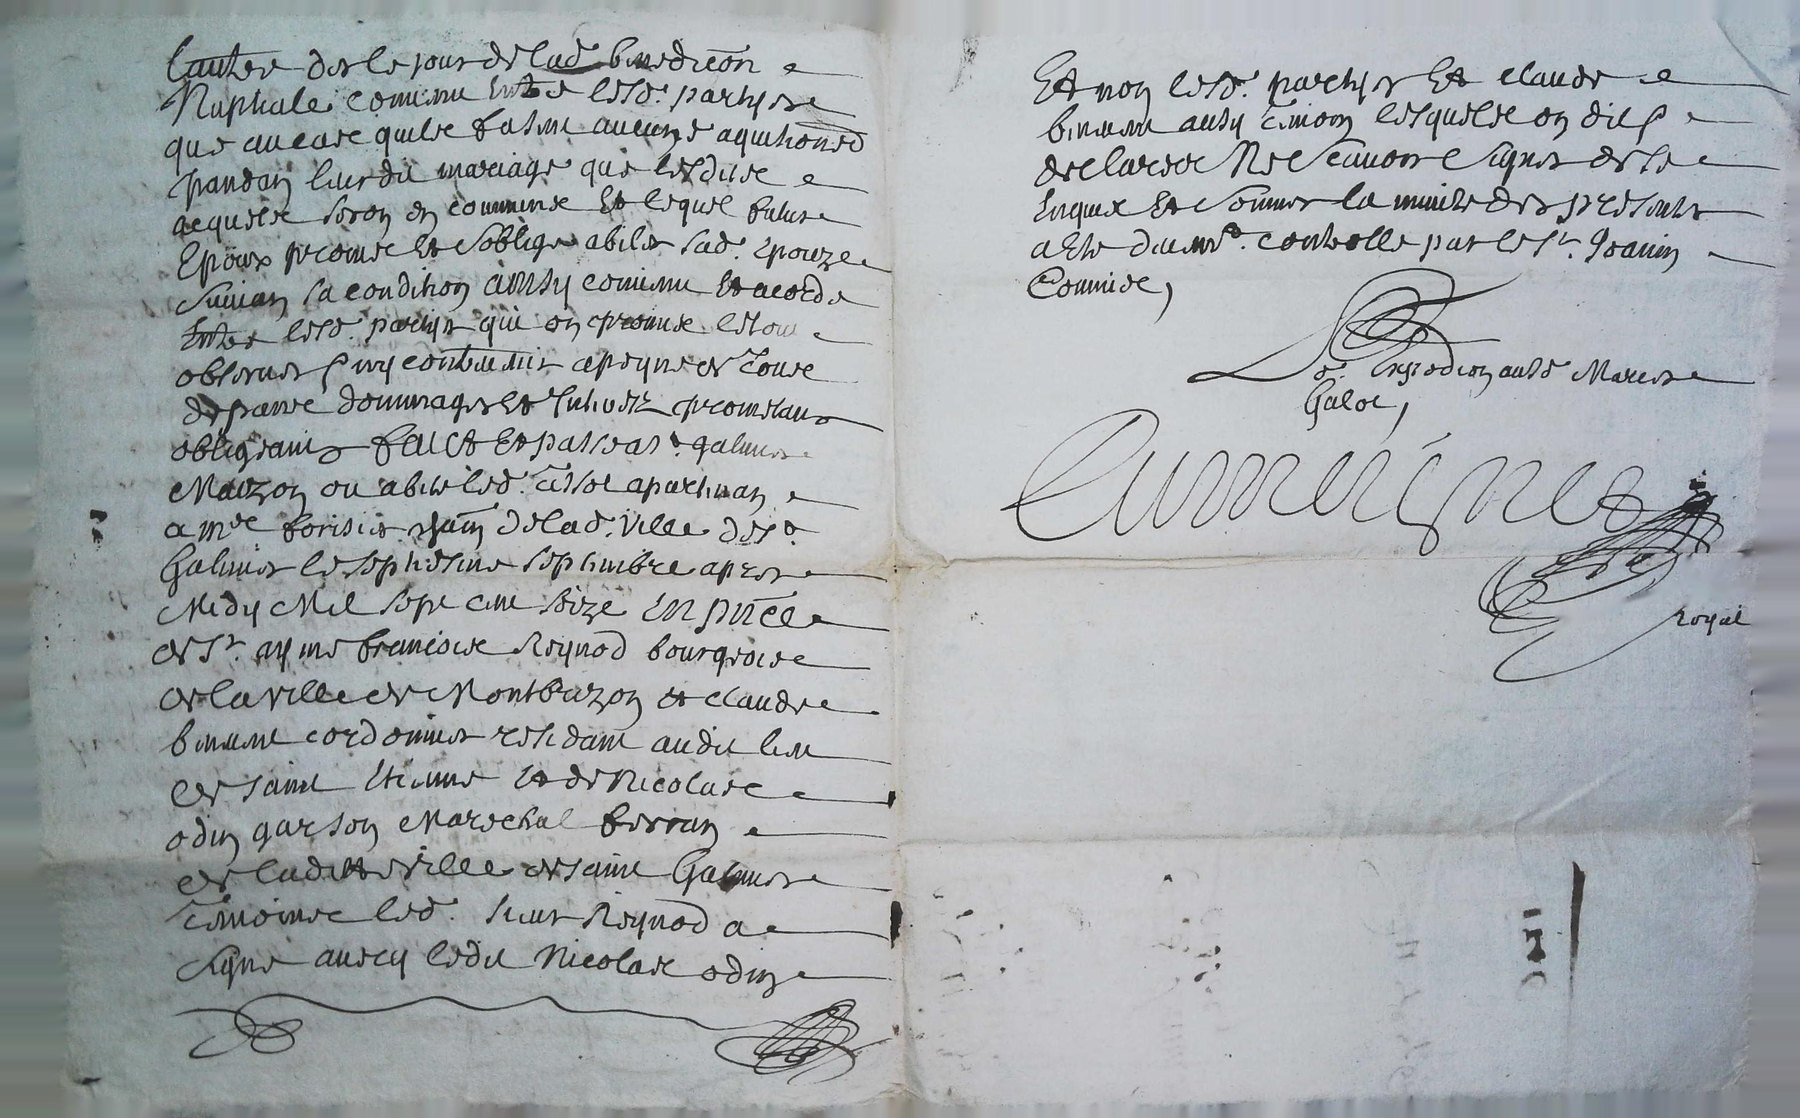 lautre des le jour de lad. benediction
Nuptiale convenu Entre lesd. partyes
que au cas quils fasse aucune aquitioned
pandan leur dit mariage que lesdits
aquets seron en commune Et lequel futur
Epoux promet Et soblige abiler sad. Epouze
suivan sa condition ainsy convenu Et acordé
Entre lesd. partyes qui on promis le tout
observer sy contrevenir a peyne de tous
depans dommages Et Interetz prometans
obligeans faict Et passé a st. galmier
Maizon ou abite led. tissot apartenan
a mre forisier de lad. Ville de st.
Galmier le septiesme septembre apres
Midy Mil sept cent seize En pnce
de sr. ayme francois Reynod bourgeois
de la ville de Montbrizon et claude
cordonnier residant audit lieu
de saint Etienne Et de Nicolas
odin garson Marechal ferran
de laditte ville de saint Galmier
temoins led. sieur Reynod a
signé avecq ledit Nicolas odin
Et non lesd. partyes Et claude
aussy temoin lesquels on dit
declarer Ne scavoir signer de ce
Enquis Et sommes la minutte des presentes
a Este duemt. controllé par le sr. Jeanin
Commis,
Expedion ausd Maries
Galoc,
royal